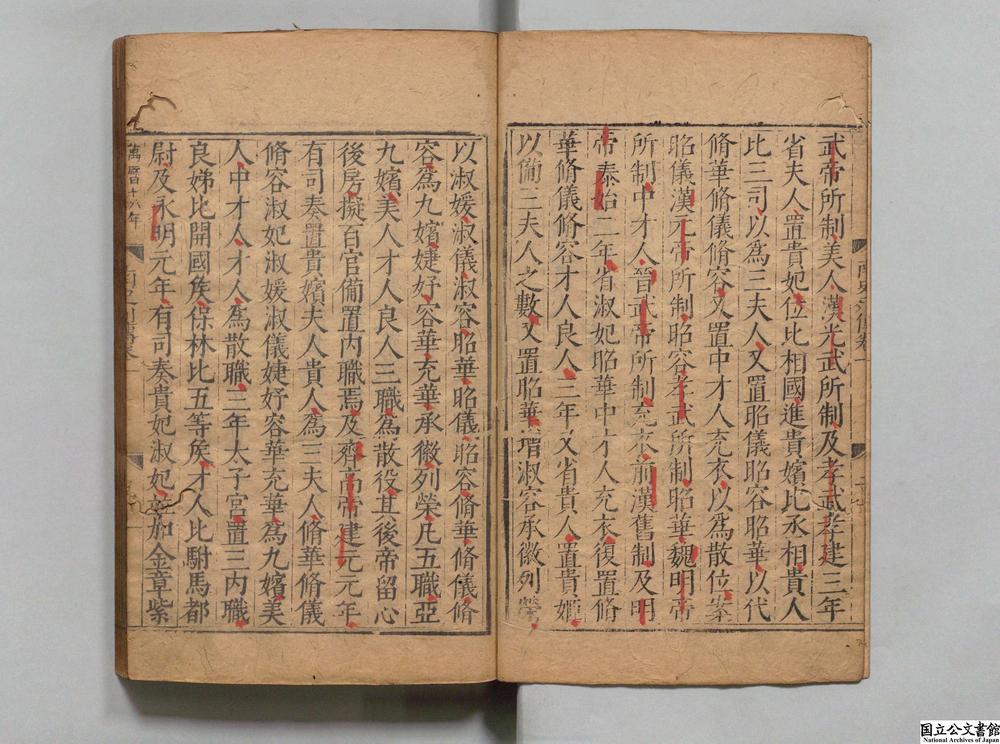 武帝所制美人漢光武所制及孝武孝建三年
省夫人置貴妃位比相國進貴嬪比丞相貴人
比三司以爲三夫人又置昭儀昭容昭華以代
脩華脩儀脩容又置中才人充衣以爲散位案
昭儀漢元帝所制昭容孝武所制昭華魏明帝
所制中才人晉武帝所制充衣前漢舊制及明
帝泰始二年省淑妃昭華中才人充衣復置脩
華脩儀脩容才人良人三年又省貴人置貴姬
以備三夫人之數又置昭華增淑容承徽列榮
以淑媛淑儀淑容昭華昭儀昭容脩華脩儀脩
容爲九嬪婕妤容華充華承徽列榮凡五職亞
九嬪美人才人良人三職爲散役其後帝留心
後房擬百官備置內職焉及齊高帝建元元年
有司奏置貴嬪夫人貴人爲三夫人脩華脩儀
脩容淑妃淑媛淑儀婕妤容華充華爲九嬪美
人中才人才人爲散職三年太子宮置三內職
良娣比開國侯保林比五等侯才人比駙馬都
尉及永明元年有司奏貴妃淑妃並加金章紫
萬曆十八年
國立公文書館
National Archives of Japan